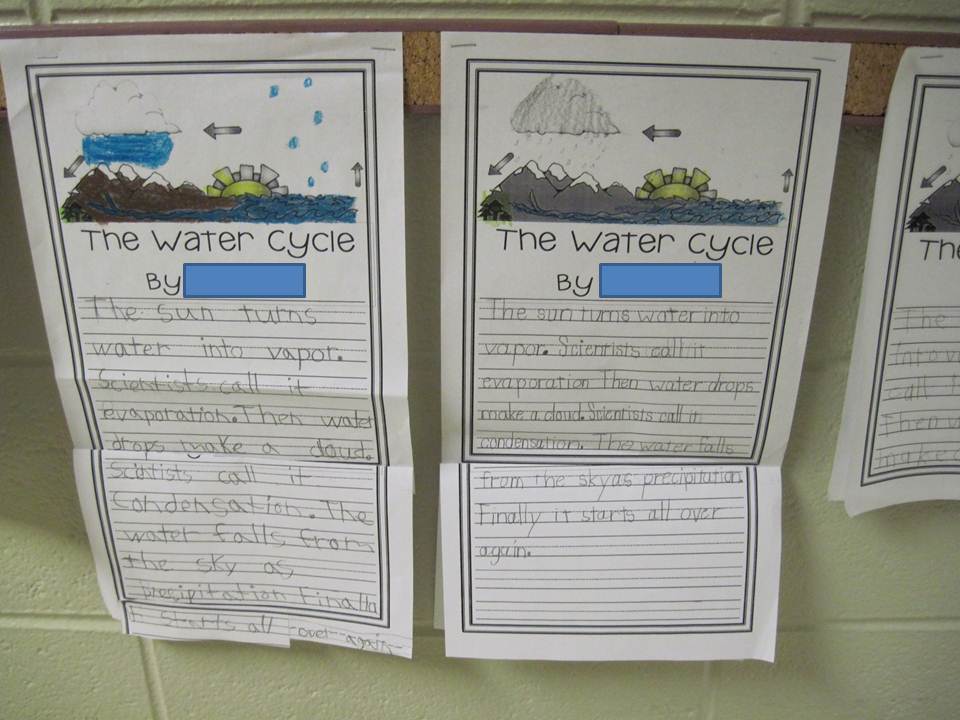 The Water Cycle
By
The sun turns
water into vapor.
Scientists call it
evaporation. Then water
drops make a cloud.
Scintists call it
condensation. The
water falls from
the sky as
precipitation Finally
it starts all over again.
The Water Cycle
By
The sun turns water into
vapor. Scientists call it
evaporation Then water drops
make a cloud. Scientists call it
condensation. The water falls
from the sky as precipitation.
Finally it starts all over
again.
The
The
into v
call
Then
make